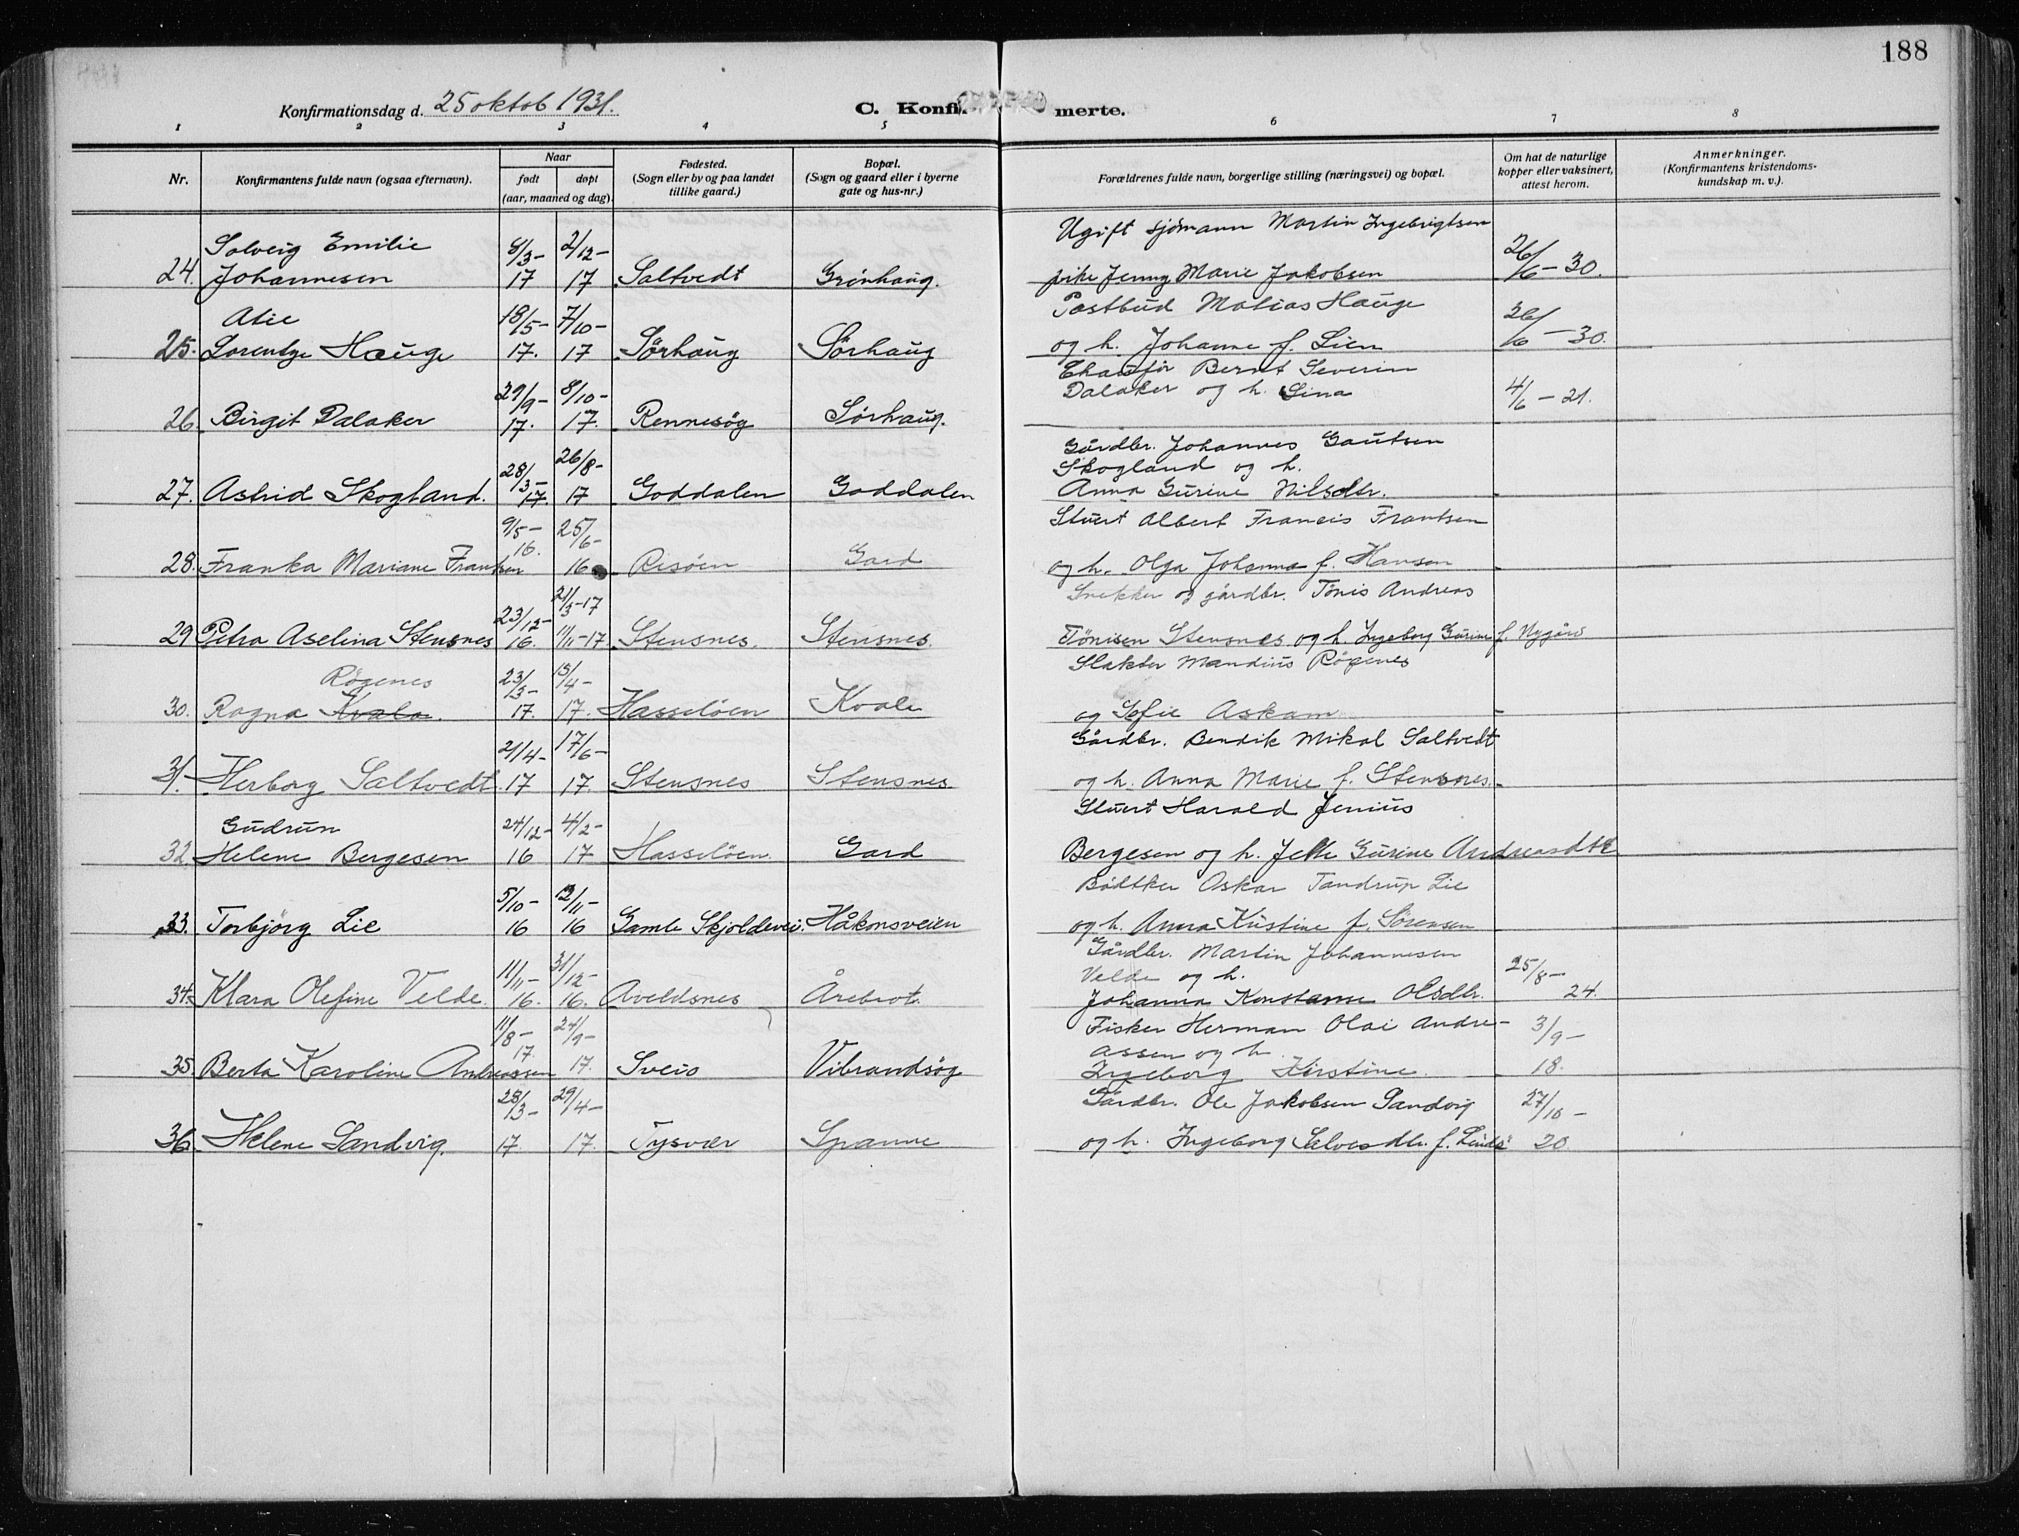 188
Konfirmationsdag d. 25 oktob 1931.
C. Konfirmerte.
1 2 3 4 5 6 7 8
Nr.
Konfirmantens fulde navn (ogsaa efternavn).
Naar
født døpt
(aar, maaned og dag).
Fødested.
(Sogn eller by og paa landet
tillike gaard.)
Bopæl.
(Sogn og gaard eller i byerne
gate og hus-nr.)
Forældrenes fulde navn, borgerlige stilling (næringsvei) og bopæl.
Om hat de naturlige
kopper eller vaksinert,
attest herom.
Anmerkninger.
(Konfirmantens kristendoms-
kundskap m. v.).
Solveig Emilie 8/3- 2/12- Ugift sjømann Martin Ingebrigtsen 26/6-30.
24. Johannesen 17 17 Saltvedt Grönhaug. pike Jenny Marie Jakobsen
Alie 18/5- 7/10- Postbud Matias Hauge 26/6-30.
25. Lorentze Hauge 17. 17 Sørhaug Sørhaug og h. Johanne f. Lien
29/9- 8/10- Chaufför Bernt Severin
Dalaker og h. Gina 4/6-21.
26. Birgit Dalaker 17. 17. Rennesöy Sørhaug.
28/3- 26/8- Gårdbr. Johannes Gautsen
Skogland og h.
27. Astrid Skogland. 17. 17 Goddalen Goddalen Anna Gurine Nilsdtr. -
9/5- 25/6- Stuert Albert Francis Frantsen
28. Franka Mariane Frantsen 16. 16 Risöen Gard og h. Olga Johanna f. Hansen -
23/12- 21/3-17 Snekker og gårdbr. Tönis Andreas
29 Petra Aselina Stensnes 16. 1/11-17 Stensnes. Stensnes. Tönisen Stensnes og h. Ingeborg Gurine f. Nygård
Røgenes 23/3- 15/4- Slakter Mandius Røgenes
30. Ragna Kvala. 17. 17. Hasselöen Kvala og Sofie Askam -
21/4- 17/6- Gårdbr. Bendik Mikal Saltvedt
31. Herborg Saltvedt 17 17. Stensnes Stensnes og h. Anna Marie f. Stensnes. -
Gudrun 24/12- 4/2- Stuert Harald Jenius
32. Helene Bergesen 16 17 Hasselöen Gard Bergesen og h. Jette Gurine Andreasdtr
5/10- 12/11- Bödtker Oskar Tandrup Lie
33. Torbjörg Lie 16 16 Gamle Skjoldevei. Håkonsveien og h. Anna Kristine f. Sörensen
11/11- 31/12- Gårdbr. Martin Johannesen
Velde og h. 25/8-
34. Klara Olefine Velde. 16. 16. Avaldsnes Årebrot. Johanna Konstanse Olsdtr. 24.
11/8- 24/9- Fisker Herman Olai Andre- 3/9-
assen og h.
35. Berta Karoline Andreassen 17. 17. Sveio Vibrandsöy Ingeborg Kirstine. 18.
28/3- 29/4- Gårdbr. Ole Jakobsen Sandvig 27/10-
36. Helene Sandvig. 17. 17. Tysvær Spanne og h. Ingeborg Salvesdtr. f. 20.